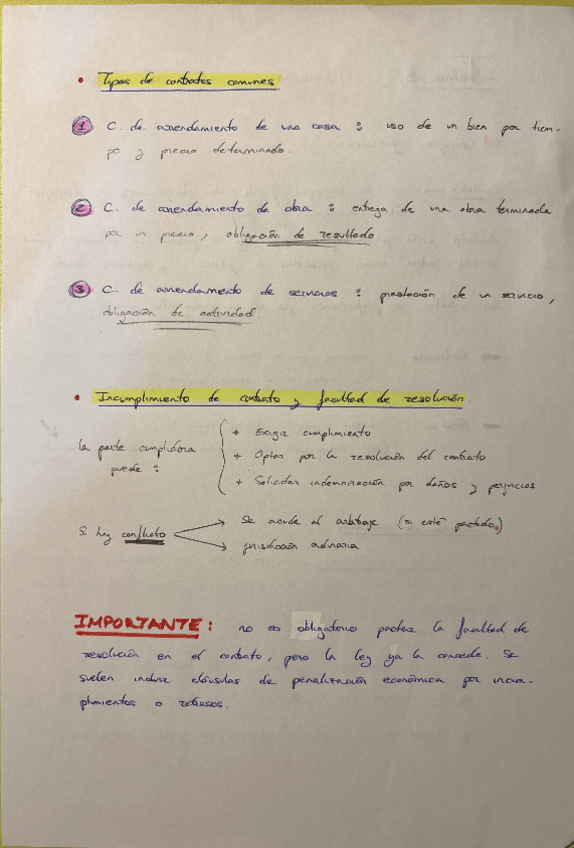 • Tipos de contratos comunes
1 C. de arrendamiento de una casa : uso de un bien por tiem-
po y precio determinado.
2 C. de arrendamiento de obra : entrega de una obra terminada
por un precio, obligación de resultado
3 C. de arrendamiento de servicios : prestación de un servicio,
obligación de actividad
• Incumplimiento de contrato y facultad de resolución.
La parte cumplidora puede :
+ Exigir cumplimiento
+ Optar por la resolución del contrato
+ Solicitar indemnización por daños y perjuicios
Si hay conflicto
Se acude al arbitraje (si esté pactado.)
jurisdicción ordinaria
IMPORTANTE : no es obligatorio pactar la facultad de
resolución en el contrato, pero la ley ya la concede. Se
suelen incluir cláusulas de penalización económica por incum-
plimientos o retrasos.